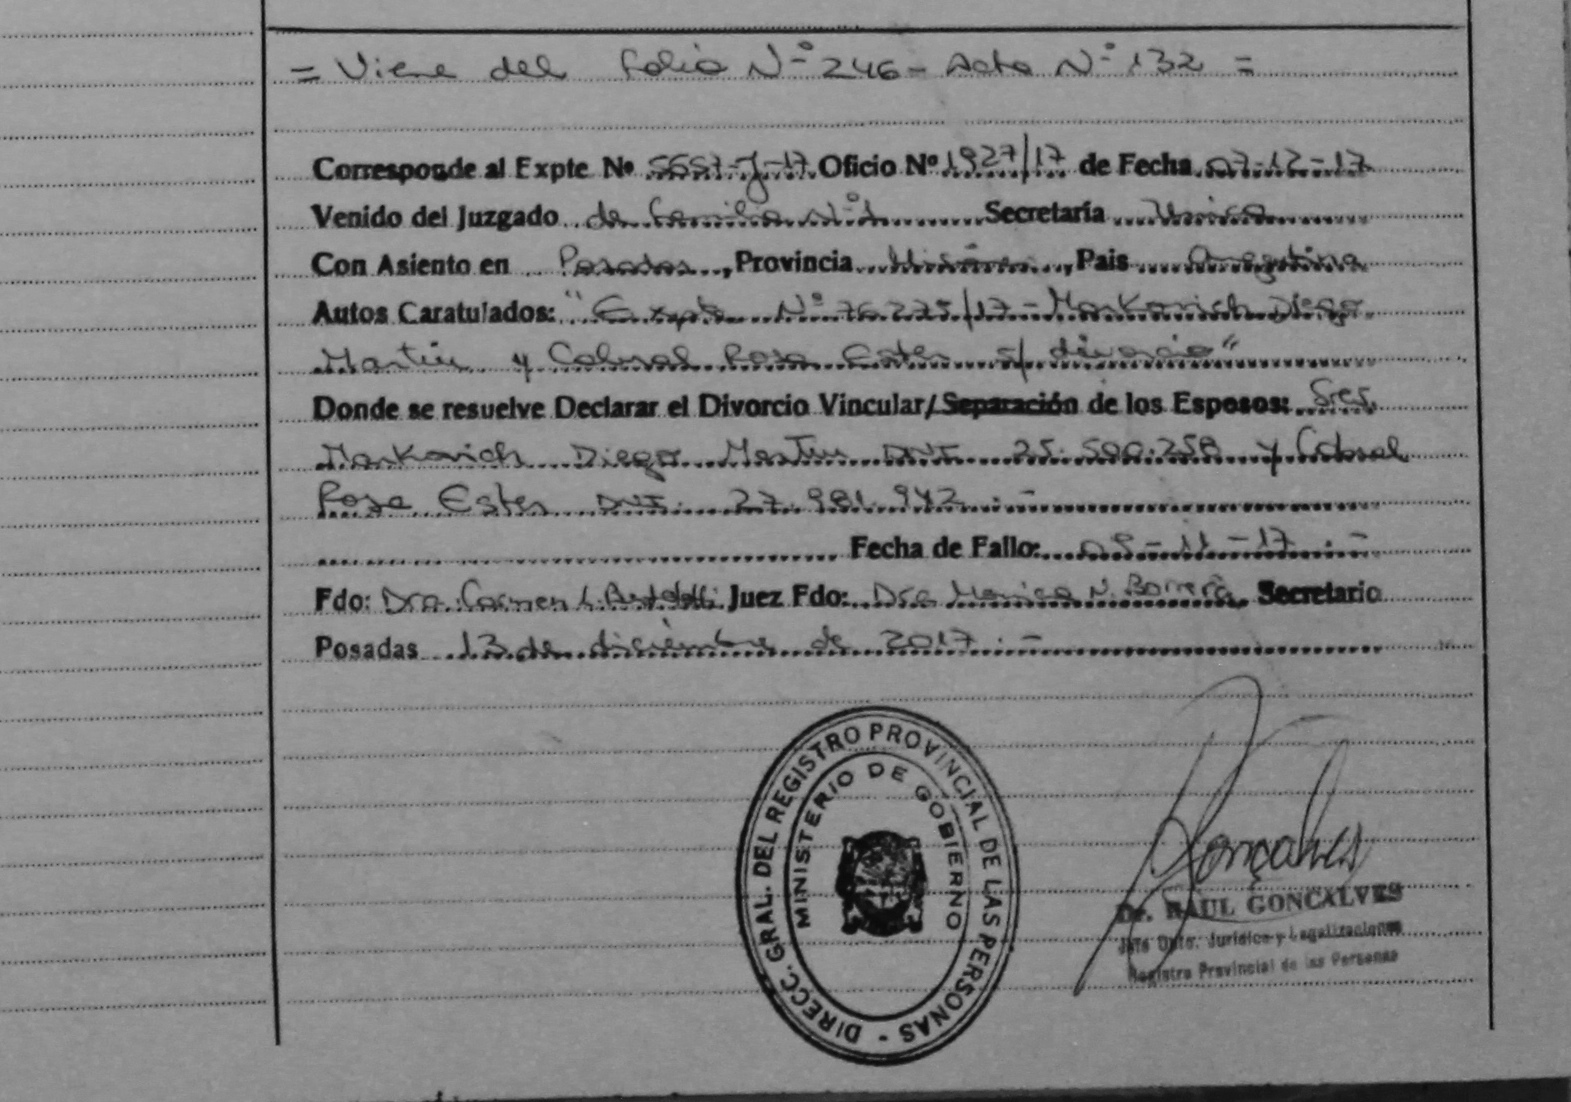 = Viene del folio Nº 246 - Acta Nº 132 =
Corresponde al Expte Nº 5651-J-17 Oficio Nº 1927/17 de Fecha 07-12-17
Venido del Juzgado de familia Nº 1 Secretaría Unica
Con Asiento en Posadas, Provincia Misiones, Pais Argentina
Autos Caratulados: "Expte Nº 76.275/17 - Markovich Diego
Martin y Cabral Rosa Ester s/ divorcio"
Donde se resuelve Declarar el Divorcio Vincular/Separación de los Esposos: Sres.
Markovich Diego Martin DNI 25.500.258 y Cabral
Rosa Ester DNI. 27.981.942.-
Fecha de Fallo: -11-17.-
Fdo: Dra. Carmen L. Juez Fdo: Dra Monica N. Secretario
Posadas 13 de diciembre de 2017.-
DIRECC. GRAL. DEL REGISTRO PROVINCIAL DE LAS PERSONAS -
MINISTERIO DE GOBIERNO
Gonçalves
Dr. RAUL GONCALVES
Jefe Dpto. Jurídico y Legalizaciones
Registro Provincial de las Personas